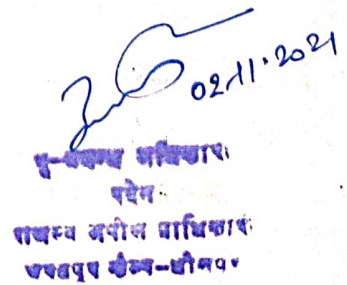 02.11.2021
भू-प्रबन्ध अधिकारी
पदेन
राजस्व अपील प्राधिकारी
भरतपुर कैम्प-धौलपुर